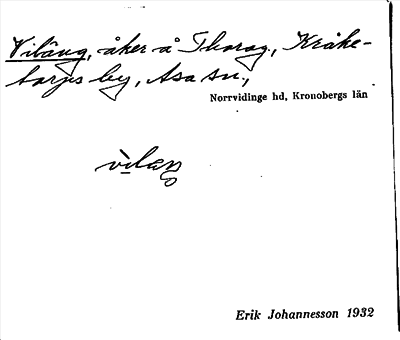 Viläng, åker å Thorag., Kråke-
torps by, Asa sn.,
Norrvidinge hd, Kronobergs län
vìlæŋ
Erik Johannesson 1932